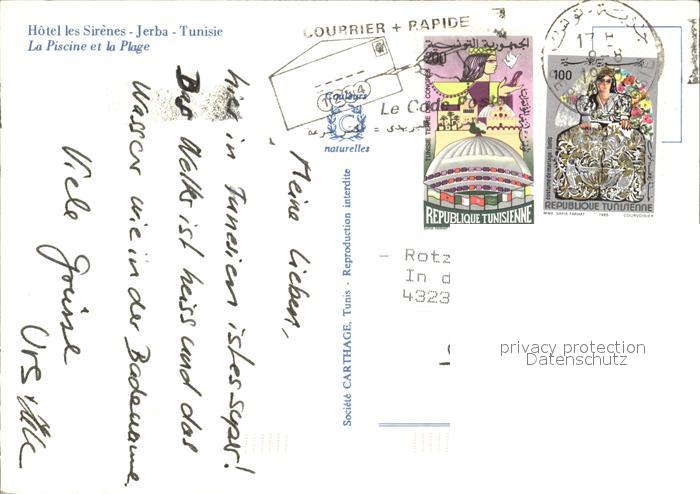 Hôtel les Sirènes - Jerba - Tunisie
La Piscine et la Plage
COURRIER + RAPIDE
Le Code Postal
Couleurs
naturelles
Société CARTHAGE, Tunis - Reproduction interdite
Meine Lieben,
hier in Tunesien ist es super!
Das Wetter ist heiss und das
Wasser wie in der Badewanne.
Viele Grüsse
Urs
الجمهورية التونسية
200
TUNISIE TERRE DE CONGRES
REPUBLIQUE TUNISIENNE
100
REPUBLIQUE TUNISIENNE
MME. SAFIA FARHAT 1985 COURVOISIER
- Rotz
In d
4323
privacy protection
Datenschutz